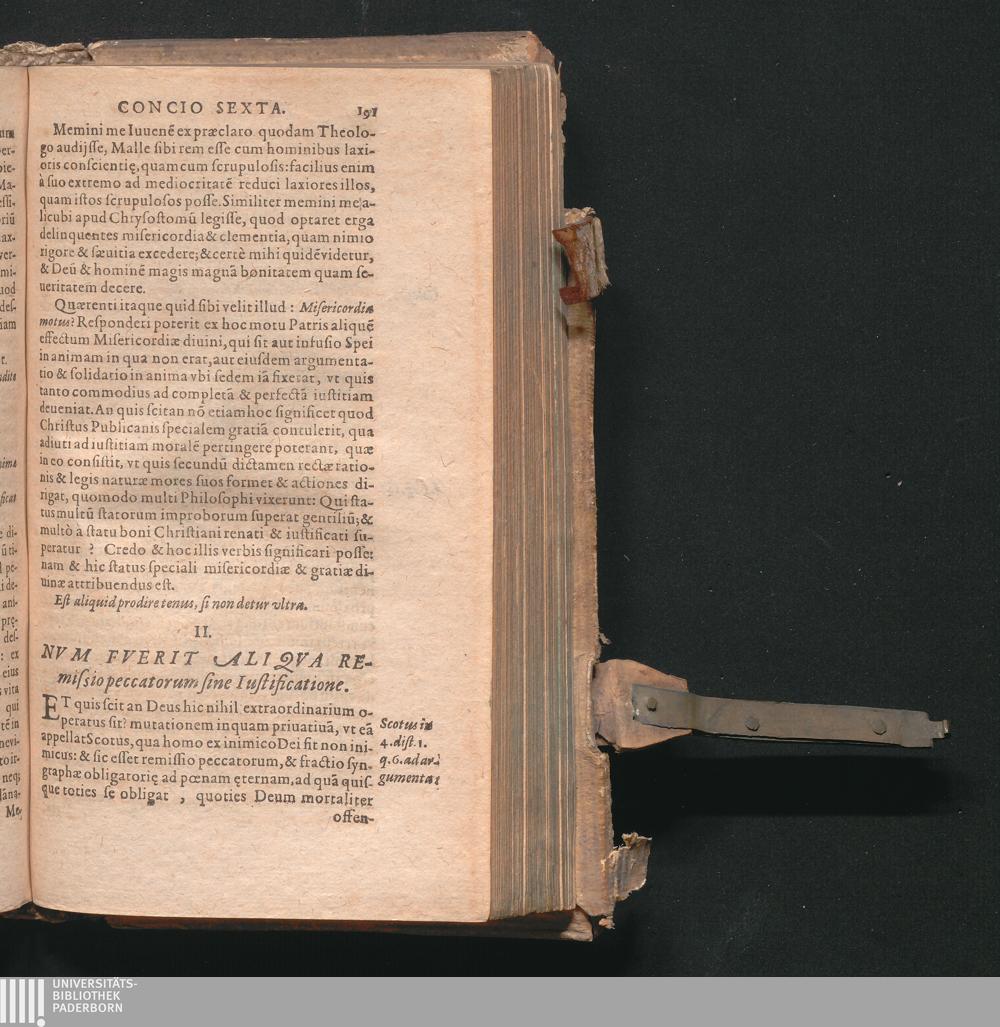 CONCIO SEXTA. 191
Memini me Iuuenē ex præclaro quodam Theolo-
go audijſſe, Malle ſibi rem eſſe cum hominibus laxi-
oris conſcientię, quam cum ſcrupuloſis: facilius enim
à ſuo extremo ad mediocritatē reduci laxiores illos,
quam iſtos ſcrupuloſos poſſe. Similiter memini me a-
licubi apud Chryſoſtomū legiſſe, quod optaret erga
delinquentes miſericordia & clementia, quam nimio
rigore & ſæuitia excedere; & certè mihi quidē videtur,
& Deū & hominē magis magnā bonitatem quam ſe-
ueritatem decere.
Quærenti itaque quid ſibi velit illud : Miſericordia
motus? Reſponderi poterit ex hoc motu Patris aliquē
effectum Miſericordiæ diuini, qui ſit aut infuſio Spei
in animam in qua non erat, aut eiuſdem argumenta-
tio & ſolidatio in anima vbi ſedem iā fixerat, vt quis
tanto commodius ad completā & perfectā iuſtitiam
deueniat. An quis ſcit an nō etiam hoc ſignificet quod
Chriſtus Publicanis ſpecialem gratiā contulerit, qua
adiuti ad iuſtitiam moralē pertingere poterant, quæ
in eo conſiſtit, vt quis ſecundū dictamen rectæ ratio-
nis & legis naturæ mores ſuos formet & actiones di-
rigat, quomodo multi Philoſophi vixerunt: Qui ſta-
tus multū ſtatorum improborum ſuperat gentiliū; &
multò à ſtatu boni Chriſtiani renati & iuſtificati ſu-
peratur ? Credo & hoc illis verbis ſignificari poſſe:
nam & hic ſtatus ſpeciali miſericordiæ & gratiæ di-
uinæ attribuendus eſt.
Eſt aliquid prodire tenus, ſi non detur vltra.
II.
NVM FVERIT ALIQVA RE-
miſſio peccatorum ſine Iuſtificatione.
ET quis ſcit an Deus hic nihil extraordinarium o-
peratus ſit? mutationem inquam priuatiuā, vt eā
appellat Scotus, qua homo ex inimico Dei fit non ini-
micus: & ſic eſſet remiſſio peccatorum, & fractio ſyn-
graphæ obligatorię ad pœnam ęternam, ad quā quiſ-
que toties ſe obligat , quoties Deum mortaliter
offen-
Scotus in
4. diſt. 1.
q. 6. ad ar-
gumenta t
UNIVERSITÄTS-
BIBLIOTHEK
PADERBORN